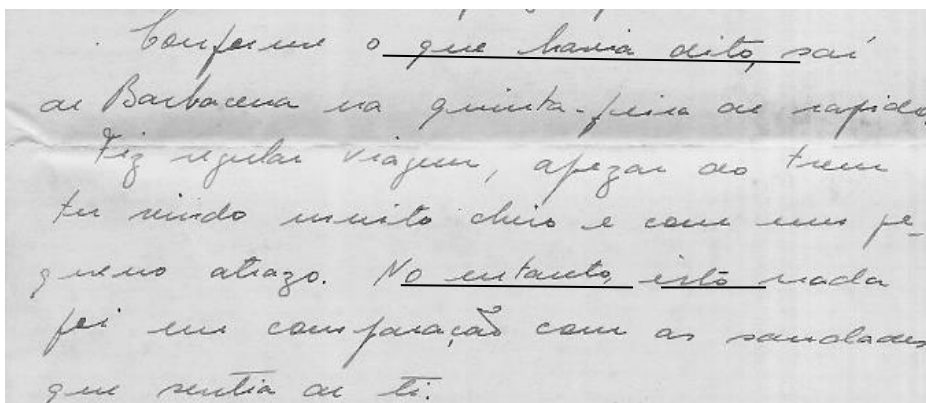 Conforme o que havia dito, saí
de Barbacena na quinta-feira de rapido.
Fiz regular viagem, apezar do trem
ter vindo muito cheio e com um pe-
queno atrazo. No entanto, isto nada
foi em comparação com as saudades
que sentia de ti.